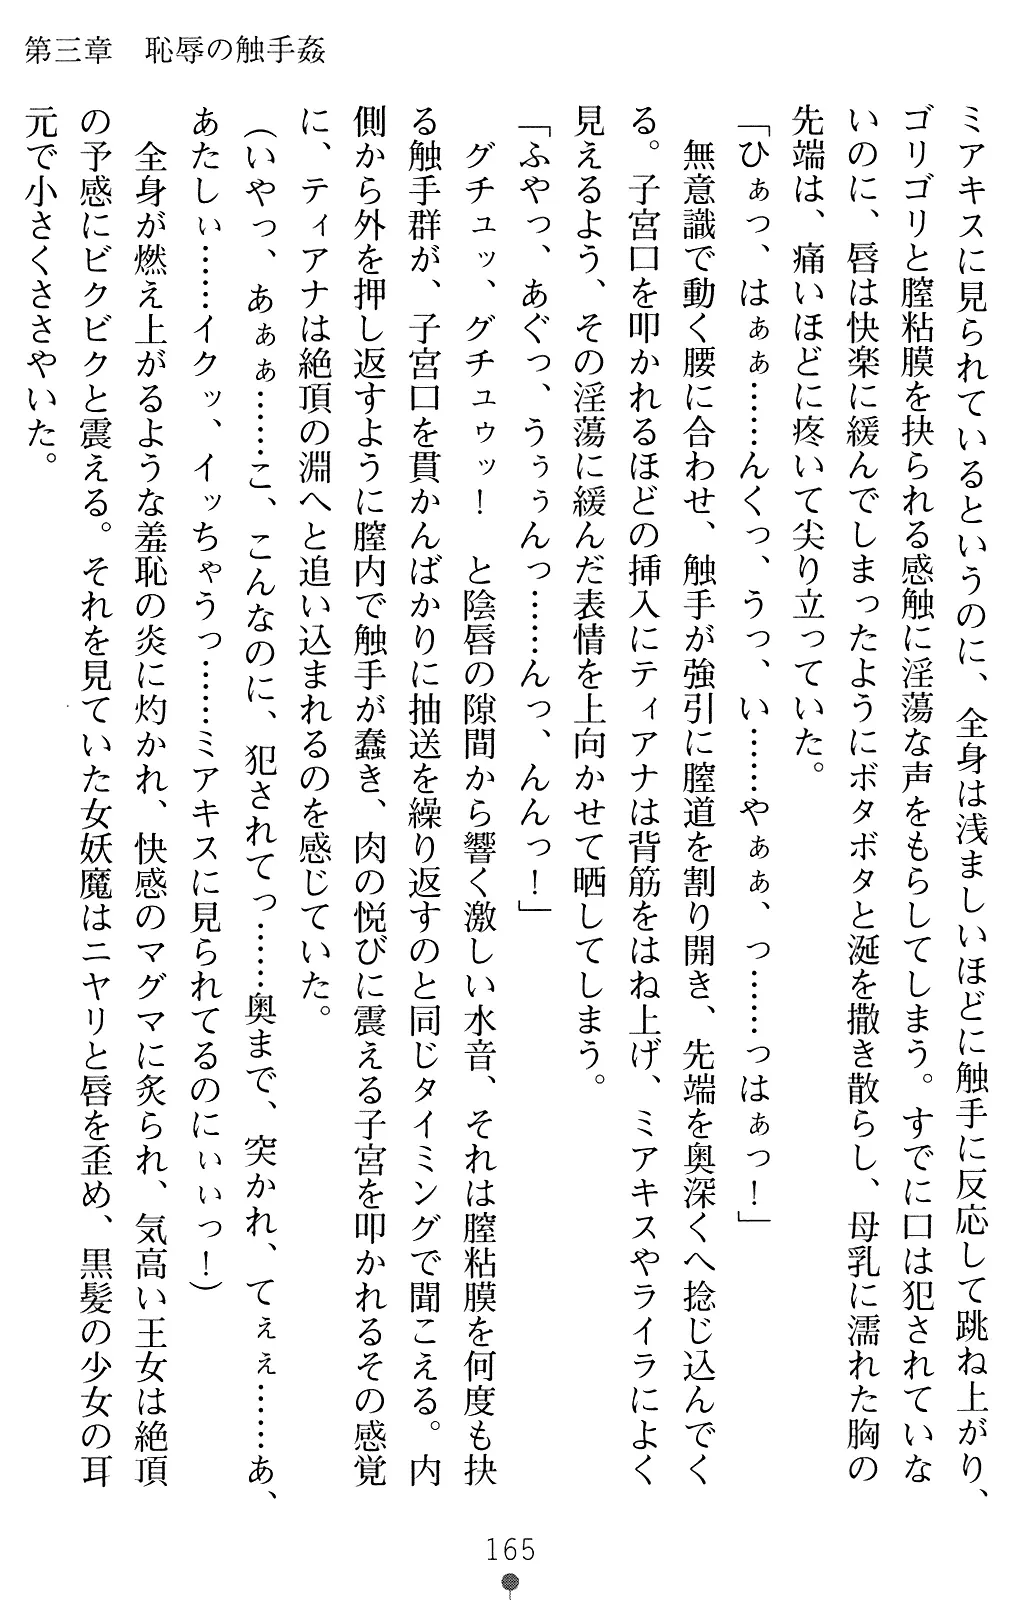 第三章　恥辱の触手姦
ミアキスに見られているというのに、全身は浅ましいほどに触手に反応して跳ね上がり、
ゴリゴリと膣粘膜を抉られる感触に淫蕩な声をもらしてしまう。すでに口は犯されていな
いのに、唇は快楽に緩んでしまったようにボタボタと涎を撒き散らし、母乳に濡れた胸の
先端は、痛いほどに疼いて尖り立っていた。
「ひぁっ、はぁぁ……んくっ、うっ、い……やぁぁ、っ……っはぁっ！」
　無意識で動く腰に合わせ、触手が強引に膣道を割り開き、先端を奥深くへ捻じ込んでく
る。子宮口を叩かれるほどの挿入にティアナは背筋をはね上げ、ミアキスやライラによく
見えるよう、その淫蕩に緩んだ表情を上向かせて晒してしまう。
「ふやっ、あぐっ、うぅぅんっ……んっ、んんっ！」
　グチュッ、グチュゥッ！　と陰唇の隙間から響く激しい水音、それは膣粘膜を何度も抉
る触手群が、子宮口を貫かんばかりに抽送を繰り返すのと同じタイミングで聞こえる。内
側から外を押し返すように膣内で触手が蠢き、肉の悦びに震える子宮を叩かれるその感覚
に、ティアナは絶頂の淵へと追い込まれるのを感じていた。
（いやっ、あぁぁ……こ、こんなのに、犯されてっ……奥まで、突かれ、てぇぇ……あ、
あたしぃ……イクッ、イッちゃうっ……ミアキスに見られてるのにぃぃっ！）
　全身が燃え上がるような羞恥の炎に灼かれ、快感のマグマに炙られ、気高い王女は絶頂
の予感にビクビクと震える。それを見ていた女妖魔はニヤリと唇を歪め、黒髪の少女の耳
元で小さくささやいた。
165